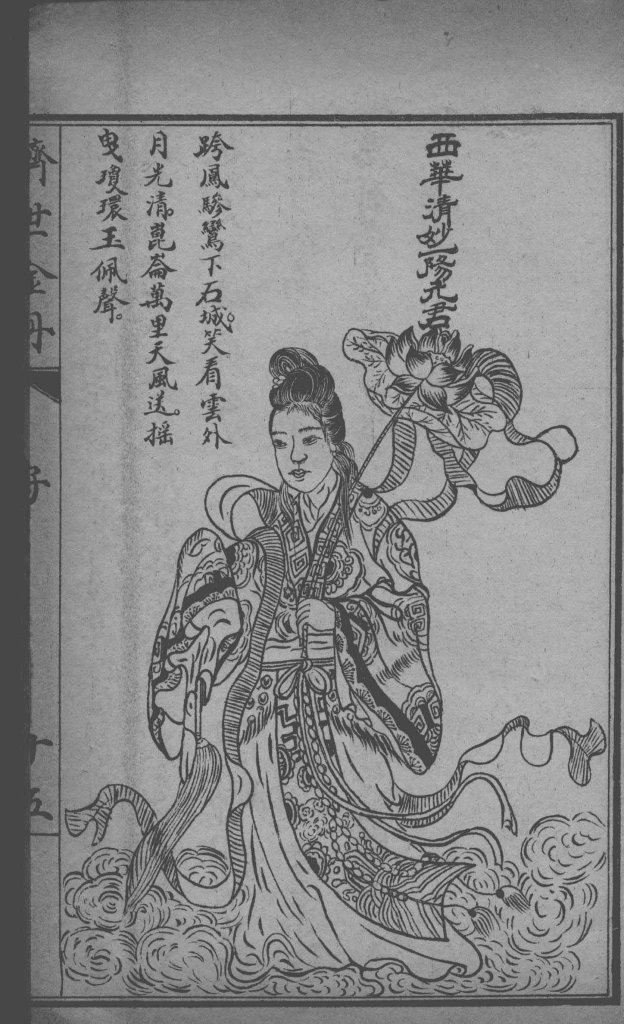 西華清妙一陽元君
跨鳳驂鸞下石城。笑看雲外
月光清。崑崙萬里天風送。搖
曳瓊環玉佩聲。
濟世金丹
子
十五